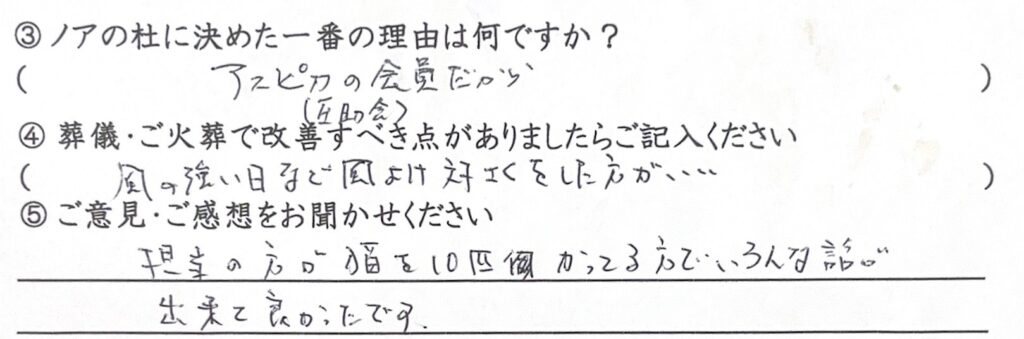 ③ ノアの杜に決めた一番の理由は何ですか？
( アスピカの会員だから )
(互助会)
④ 葬儀・ご火葬で改善すべき点がありましたらご記入ください
( 風の強い日など風よけ対さくをした方が、、、、 )
⑤ ご意見・ご感想をお聞かせください
の方が猫を10匹 かってる方でいろんな話が
出来て良かったです.